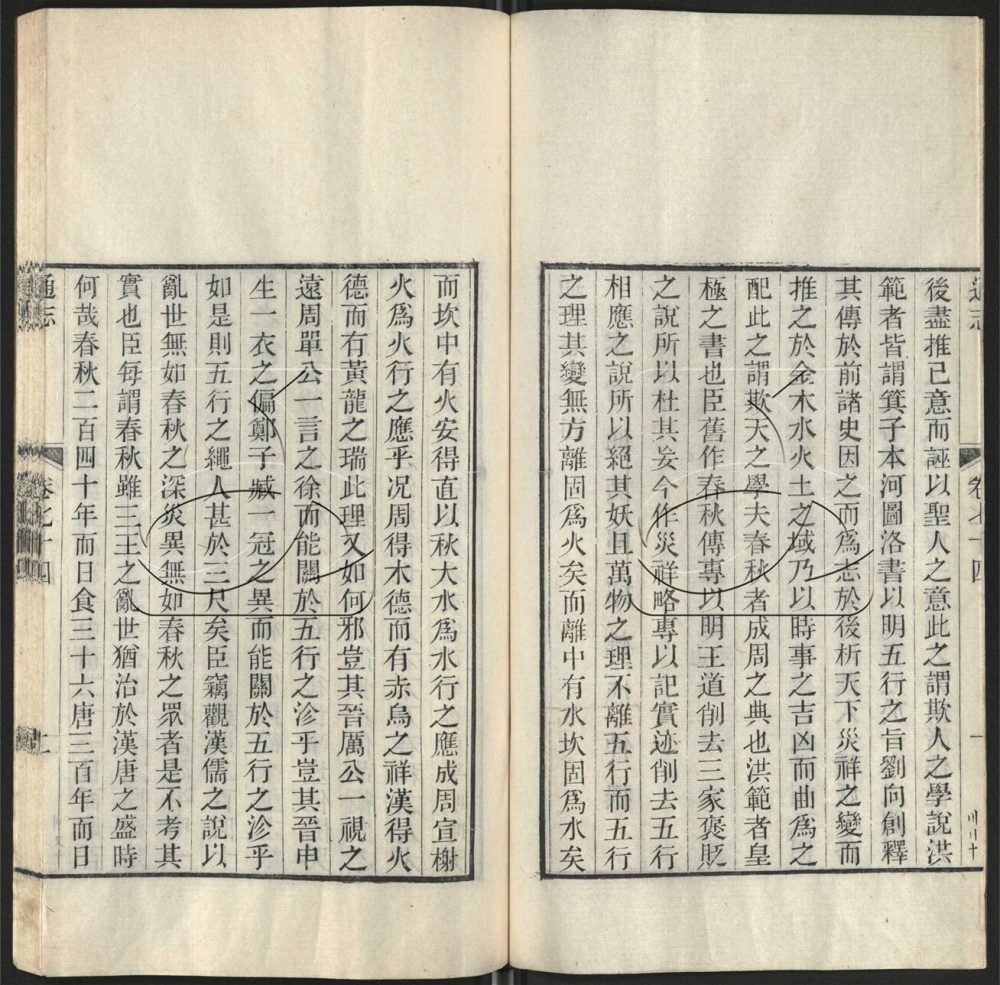 後盡推已意而誣以聖人之意此之謂欺人之學說洪
範者皆謂箕子本河圖洛書以明五行之旨劉向創釋
其傳於前諸史因之而爲志於後析天下災祥之變而
推之於金木水火土之域乃以時事之吉凶而曲爲之
配此之謂欺天之學夫春秋者成周之典也洪範者皇
極之書也臣舊作春秋傳專以明王道削去三家褒貶
之說所以杜其妄今作災祥略專以記實迹削去五行
相應之說所以絕其妖且萬物之理不離五行而五行
之理其變無方離固爲火矣而離中有水坎固爲水矣
而坎中有火安得直以秋大水爲水行之應成周宣榭
火爲火行之應乎况周得木德而有赤烏之祥漢得火
德而有黃龍之瑞此理又如何邪豈其晉厲公一視之
遠周單公一言之徐而能關於五行之沴乎豈其晉申
生一衣之偏鄭子臧一冠之異而能關於五行之沴乎
如是則五行之繩人甚於三尺矣臣竊觀漢儒之說以
亂世無如春秋之深災異無如春秋之眾者是不考其
實也臣每謂春秋雖三王之亂世猶治於漢唐之盛時
何哉春秋二百四十年而日食三十六唐三百年而日
通志
卷七十四